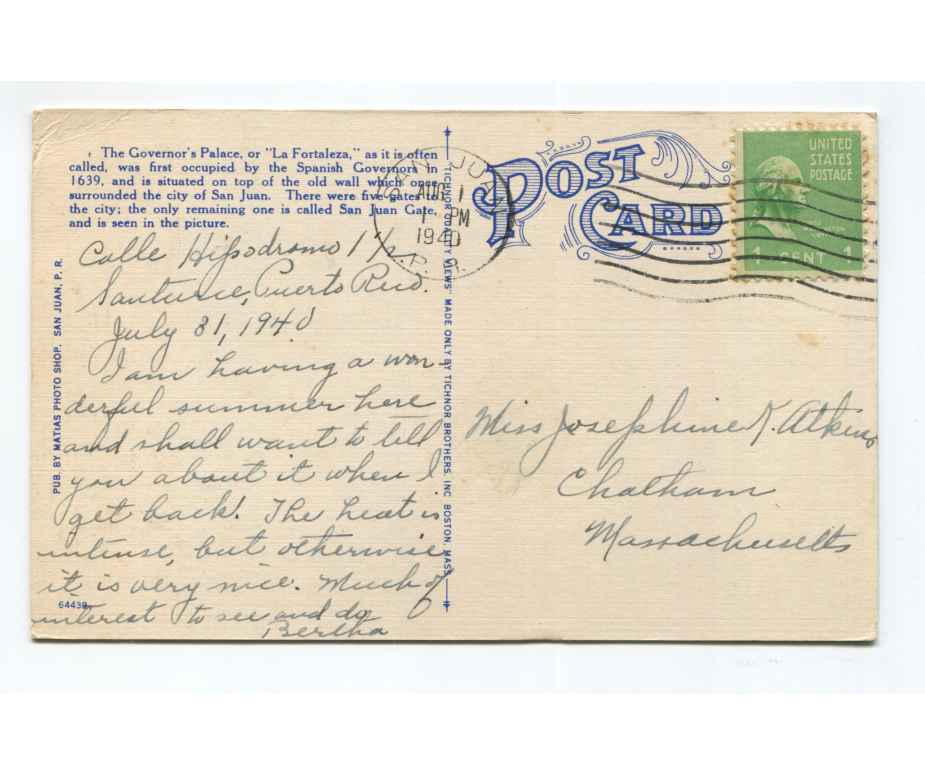 The Governor's Palace, or "La Fortaleza," as it is often
called, was first occupied by the Spanish Governors in
1639, and is situated on top of the old wall which once
surrounded the city of San Juan. There were five gates to
the city; the only remaining one is called San Juan Gate,
and is seen in the picture.
Calle Hipodromo 11½
Santurce, Puerto Rico.
July 31, 1940
I am having a won-
derful summer here
and shall want to tell
you about it when I
get back! The heat is
intense, but otherwise
it is very nice. Much of
interest to see and do
Bertha
64438
PUB. BY MATIAS PHOTO SHOP, SAN JUAN, P. R.
"TICHNOR QUALITY VIEWS" MADE ONLY BY TICHNOR BROTHERS, INC. BOSTON, MASS.
POST
CARD
SAN JUAN
AUG 1
1 PM
1940
P.R.
UNITED
STATES
POSTAGE
WASHINGTON
1 CENT 1
Miss Josephine K. Atkins
Chatham
Massachusetts